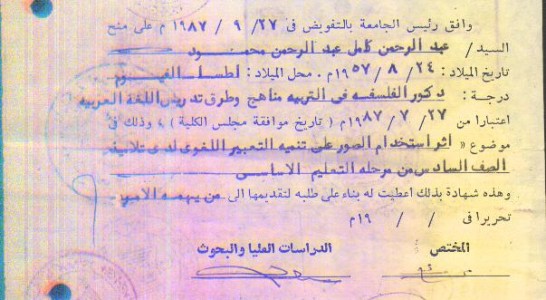 وافق رئيس الجامعة بالتفويض فى ٢٧ / ٩ / ١٩٨٧ م على منح
السيد / عبد الرحمن كامل عبد الرحمن محمود
تاريخ الميلاد : ٢٤ / ٨ / ١٩٥٧م . محل الميلاد : اطسا الفيوم
درجة : دكتور الفلسفه فى التربيه مناهج وطرق تدريس اللغة العربيه
اعتبارا من ٢٧ / ٧ / ١٩٨٧م ( تاريخ موافقة مجلس الكلية ) ، وذلك فى
موضوع « أثر استخدام الصور على تنميه التعبير اللغوى لدى تلاميذ
الصف السادس من مرحله التعليم الاساسى
وهذه شهادة بذلك أعطيت له بناء على طلبه لتقديمها الى من يهمه الامر
تحريرا فى / / ١٩م
المختص الدراسات العليا والبحوث